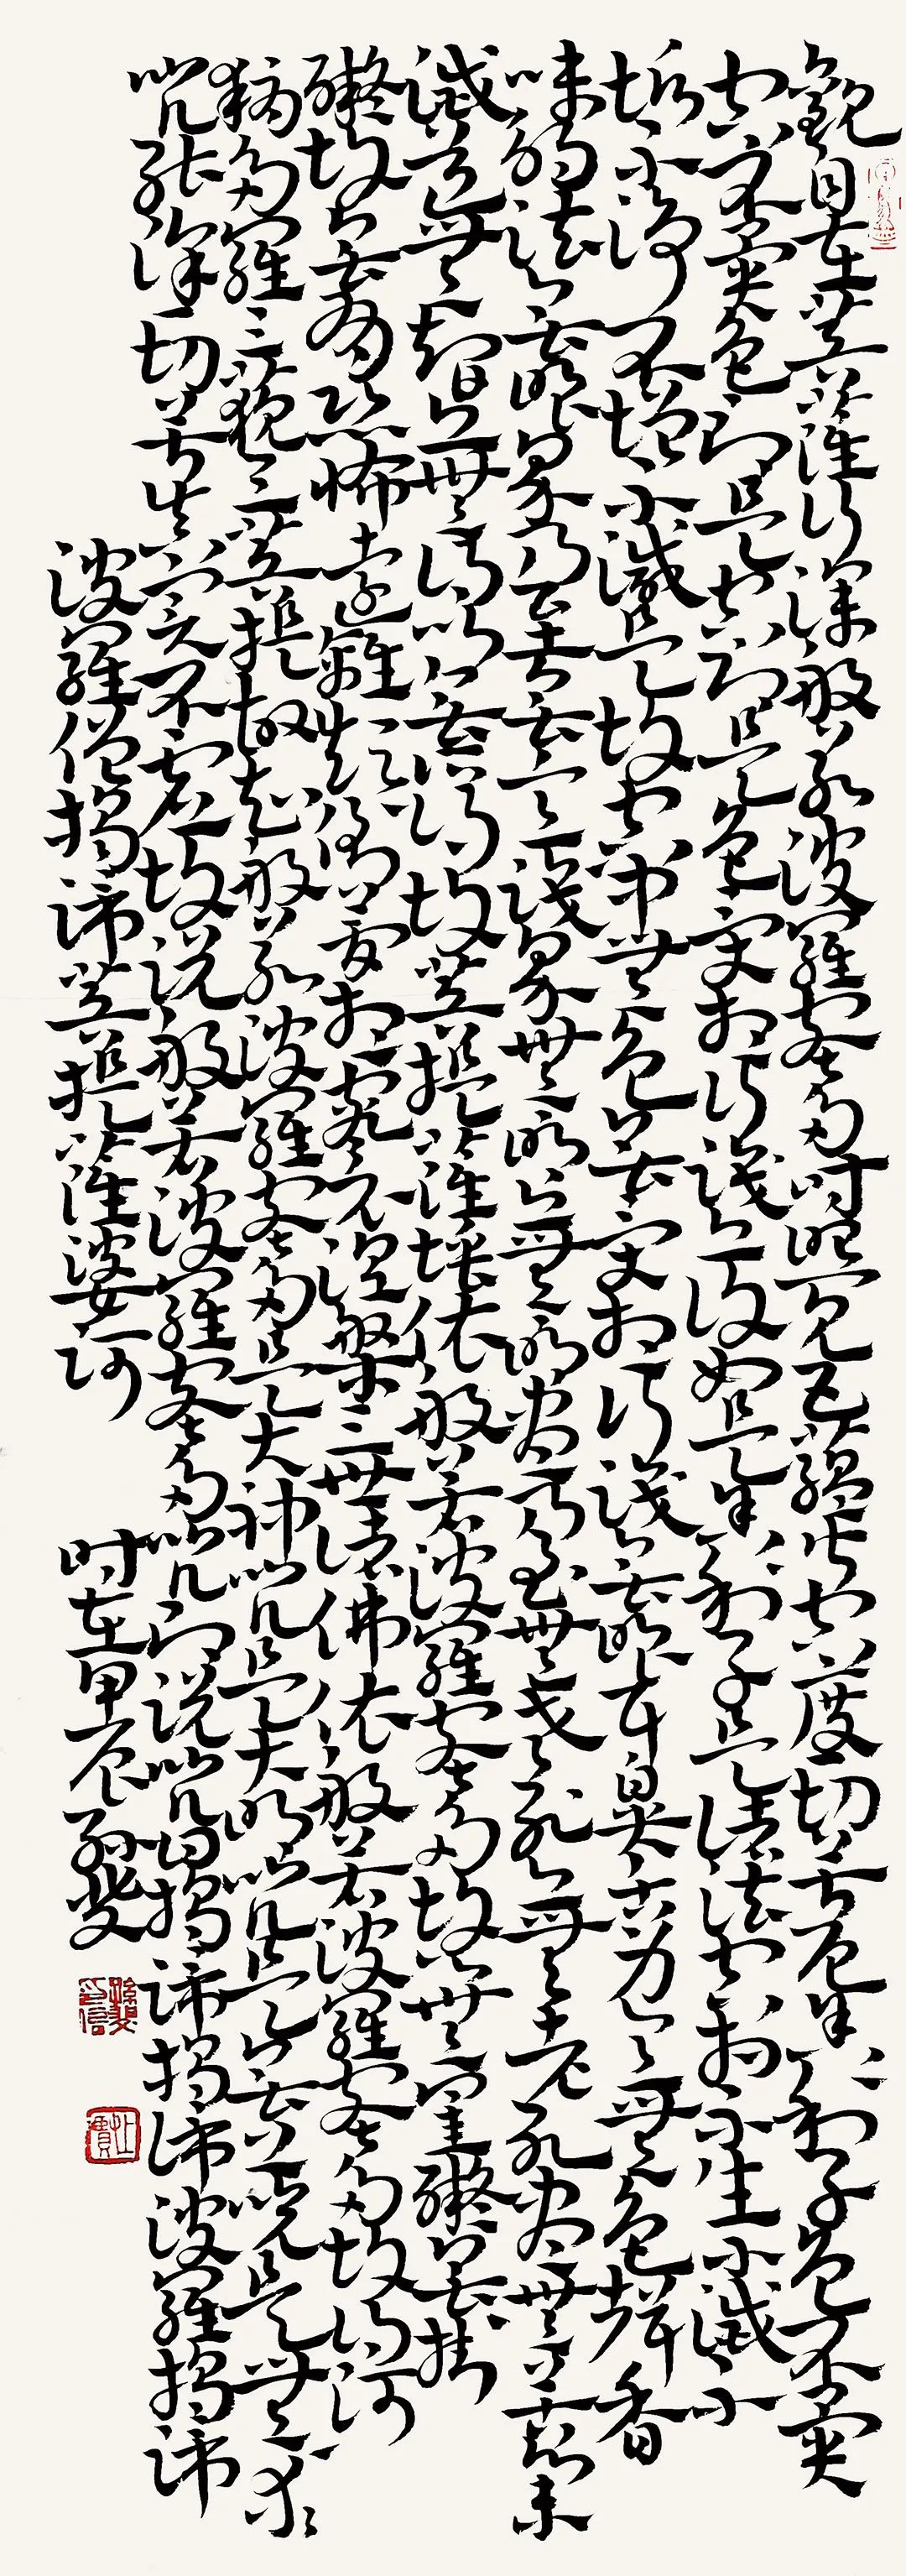 觀自在菩薩行深般若波羅蜜多時照見五蘊皆空度一切苦厄舍利子色不異
空空不異色色即是空空即是色受想行識亦復如是舍利子是諸法空相不生不滅不
垢不淨不增不減是故空中無色無受想行識無眼耳鼻舌身意無色聲香
味觸法無眼界乃至無意識界無無明亦無無明盡乃至無老死亦無老死盡無苦集
滅道無智亦無得以無所得故菩提薩埵依般若波羅蜜多故心無罣礙無挂
礙故無有恐怖遠離顛倒夢想究竟涅槃三世諸佛依般若波羅蜜多故得阿
耨多羅三藐三菩提故知般若波羅蜜多是大神咒是大明咒是無上咒是無等等
咒能除一切苦真實不虛故說般若波羅蜜多咒即說咒曰揭諦揭諦波羅揭諦
波羅僧揭諦菩提薩婆訶
時在甲辰孫斐
孫斐印信